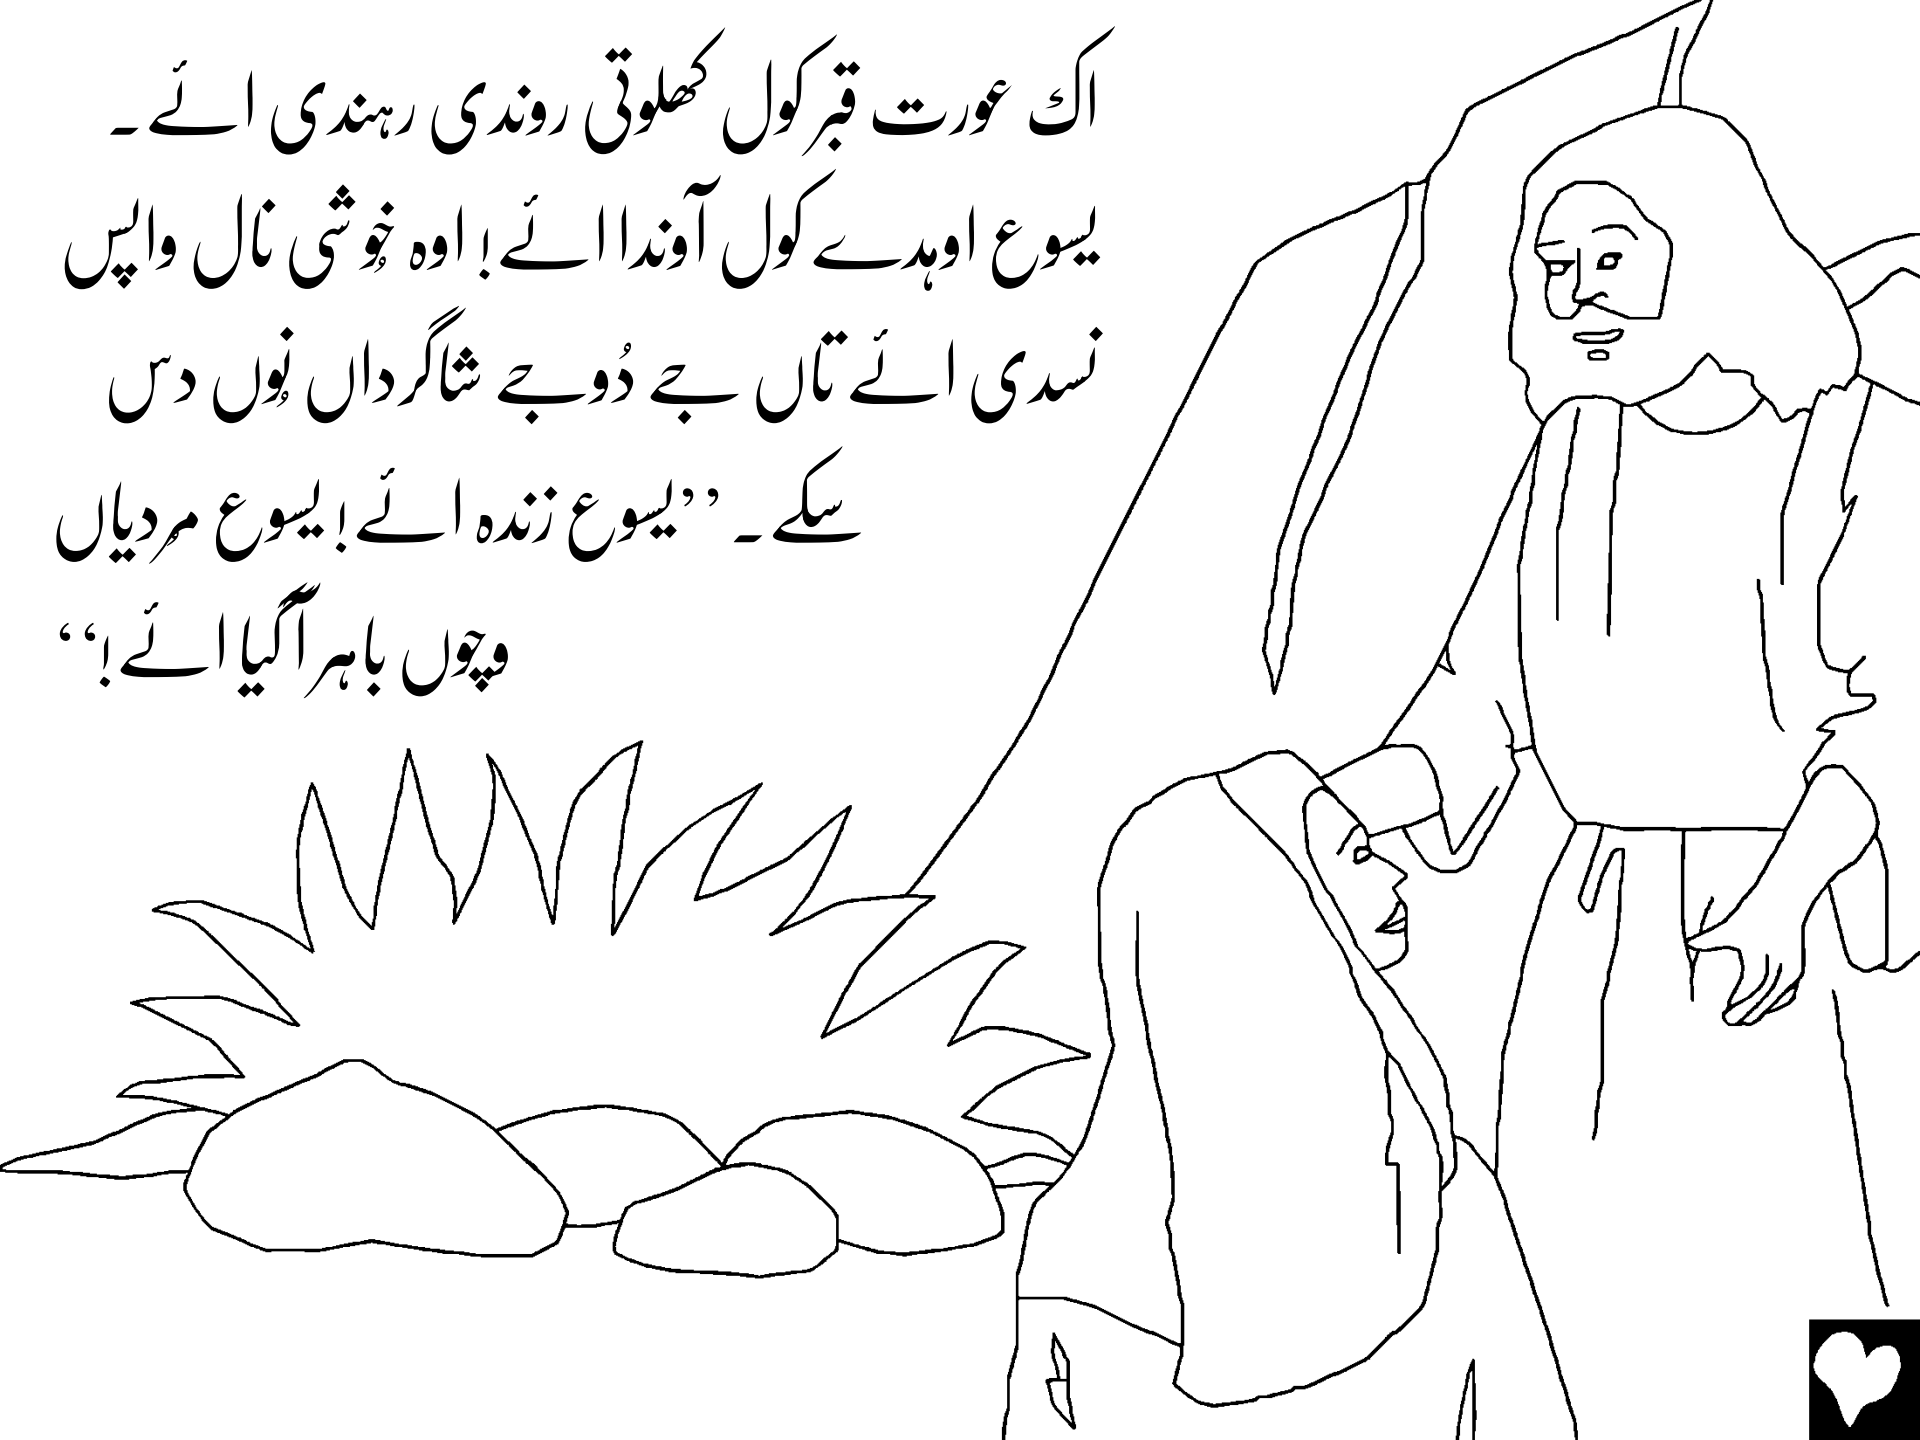 اک عورت قبر کول کھلوتی روندی رہندی ائے۔
یسوع اوہدے کول آوندا ائے! اوہ خُوشی نال واپس
نسدی ائے تاں جے دُوجے شاگرداں نُوں دس
سکے۔ ’’یسوع زندہ ائے! یسوع مردیاں
وچوں باہر آ گیا ائے!‘‘